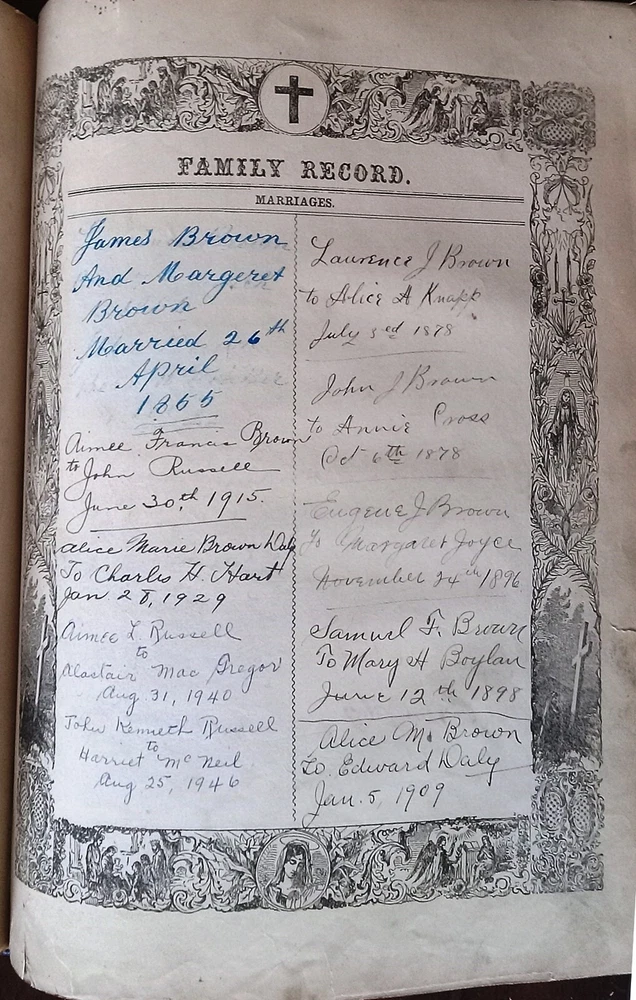 FAMILY RECORD.
MARRIAGES.
James Brown
And Margeret
Brown
Married 26th
April
1855
Aimee Francis Brown
to John Russell
June 30th 1915.
Alice Marie Brown Daly
To Charles H. Hart
Jan 28, 1929
Aimee L. Russell
to
Alastair Mac Gregor
Aug. 31, 1940
John Kenneth Russell
to
Harriet Mc Neil
Aug 25, 1946
Laurence J Brown
to Alice A Knapp
July 3ed 1878
John J Brown
to Annie Cross
Oct 6th 1878
Eugene J Brown
To Margaret Joyce
November 24th 1896
Samuel F. Brown
To Mary H Boylan
June 12th 1898
Alice M. Brown
to Edward Daly
Jan. 5, 1909